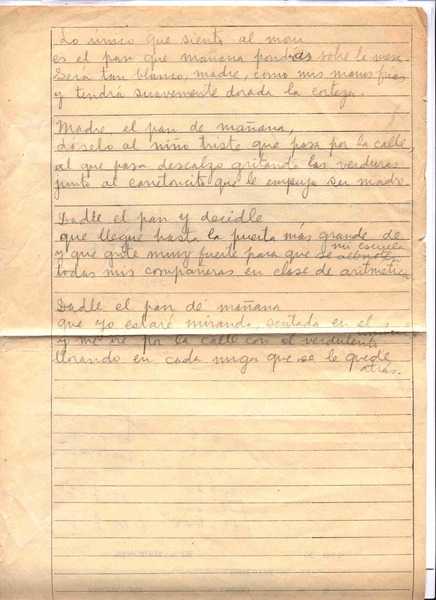 Lo único que siento al morir
es el pan que mañana pondrás sobre la mesa.
Será tan blanco, madre, como mis manos frías
y tendrá suavemente dorada la corteza.
Madre, el pan de mañana,
dáselo al niño triste que pasa por la calle,
al que pasa descalzo gritando las verduras
junto al carretoncito que le empuja su madre.
Dadle el pan y decidle
que llegue hasta la puerta más grande de
mi escuela
y que grite muy fuerte para que se alboroten
todas mis compañeras en clase de aritmética.
Dadle el pan de mañana
que yo estaré mirando, sentada en el
y me iré por la calle con el verdulerito
llorando en cada miga que se le quede
atrás.